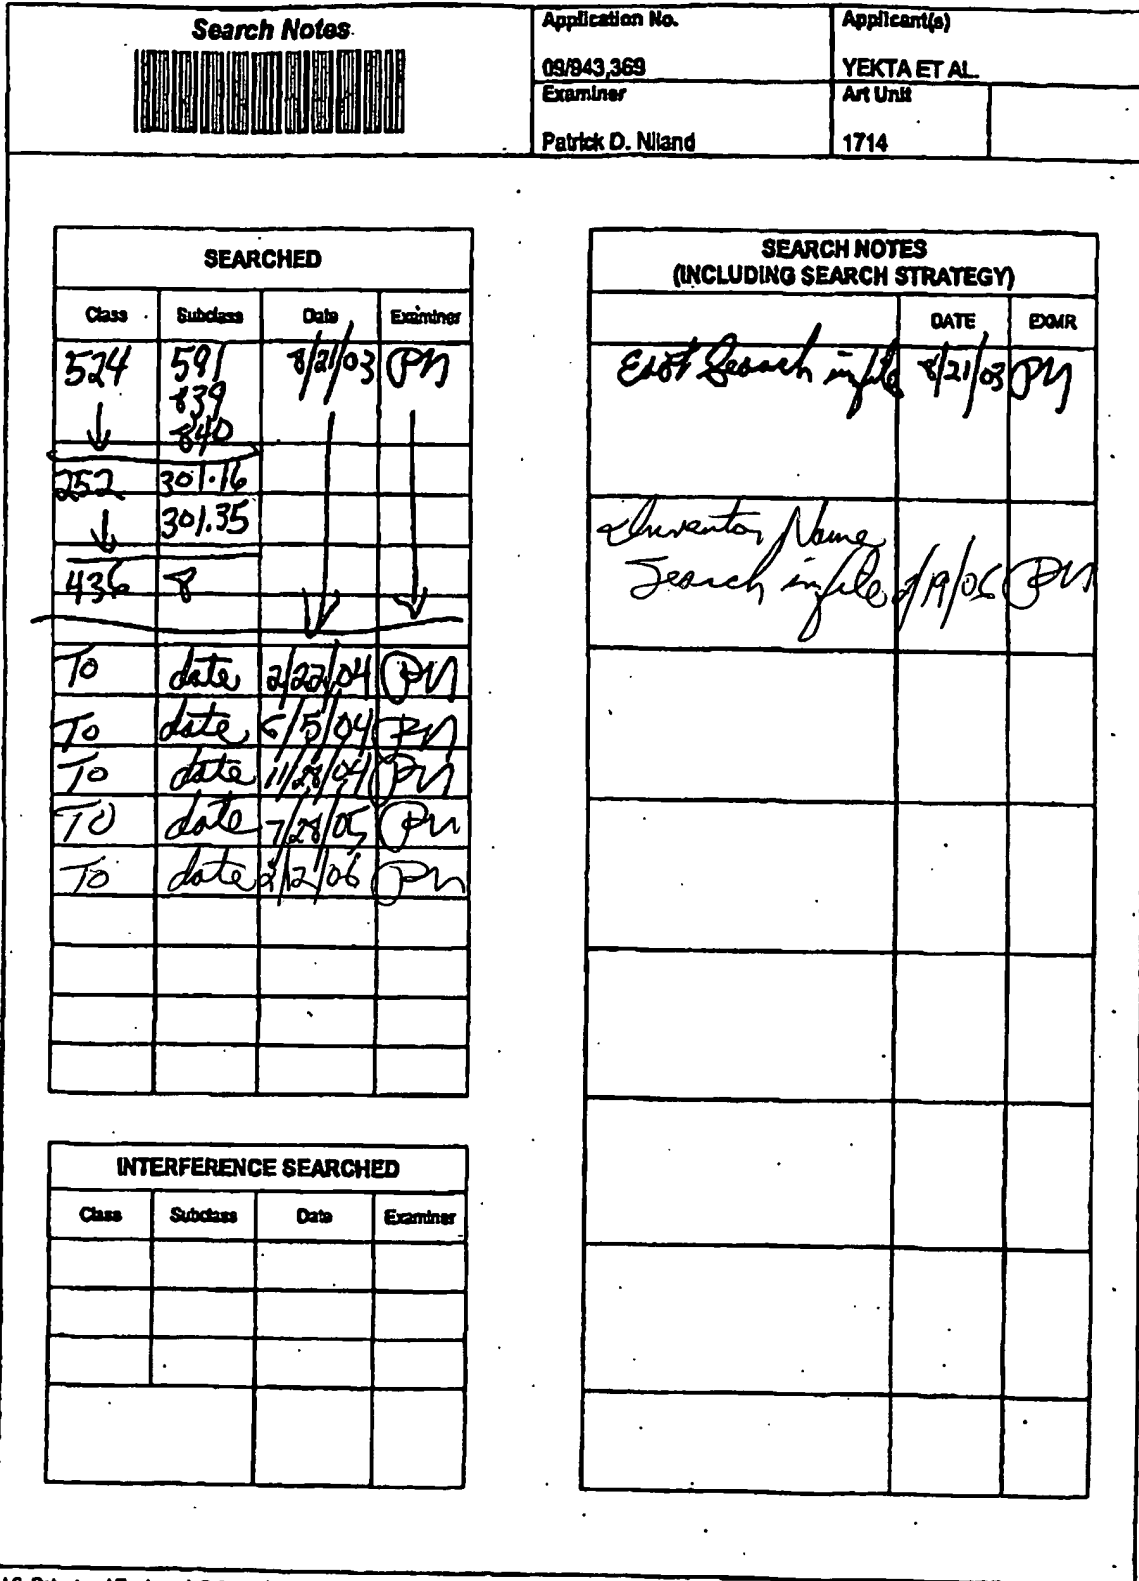 Search Notes
Application No.
09/943,369
Applicant(s)
YEKTA ET AL.
Examiner
Patrick D. Niland
Art Unit
1714
SEARCHED
Class Subclass Date Examiner
524 591 8/21/03 PN
839
840
252 301.16
301.35
436 8
To date 2/22/04 PN
To date 6/5/04 PN
To date 11/28/04 PN
To date 7/28/05 PN
To date 2/12/06 PN
INTERFERENCE SEARCHED
Class Subclass Date Examiner
SEARCH NOTES
(INCLUDING SEARCH STRATEGY)
DATE EXMR
East Search in file 8/21/03 PN
Inventor Name
Search in file /19/06 PN